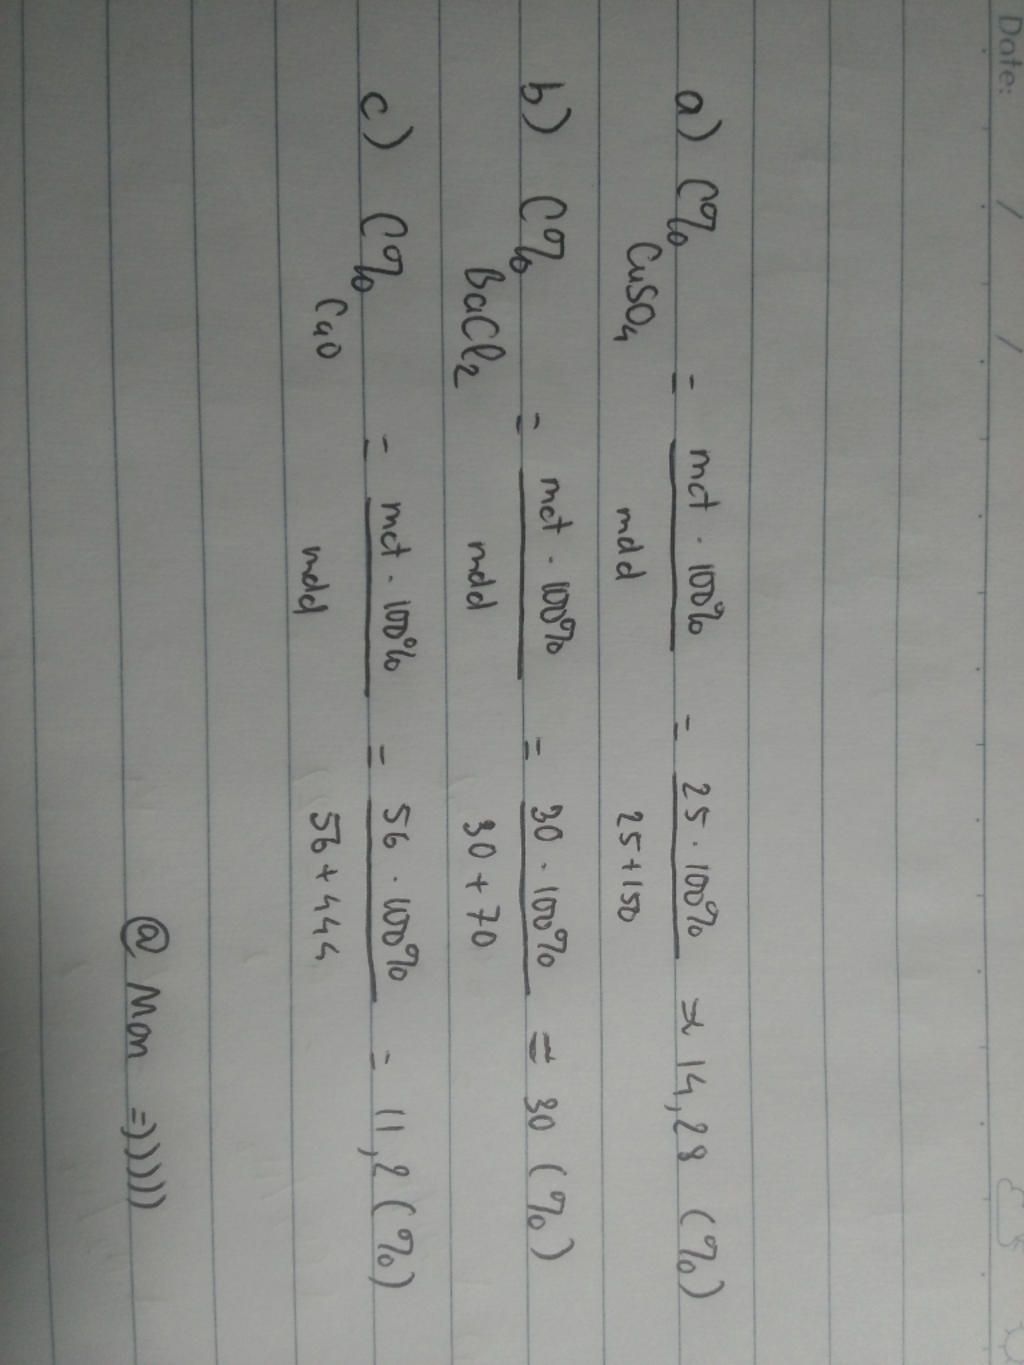 Date: / /
a) C% CuSO4 = mct . 100% / mdd = 25 . 100% / 25+150 ≈ 14,28 (%)
b) C% BaCl2 = mct . 100% / mdd = 30 . 100% / 30+70 = 30 (%)
c) C% CaO = mct . 100% / mdd = 56 . 100% / 56+444 = 11,2 (%)
@ Mon =))))))